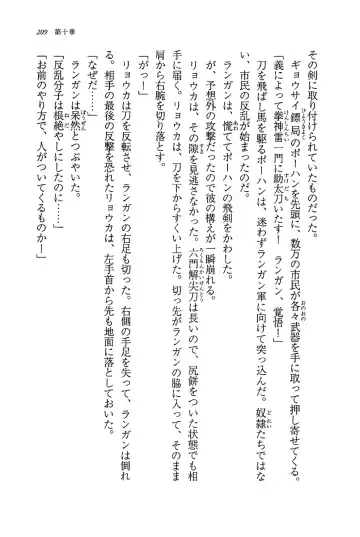 209 第十章
その剣に取り付けられていたものだった。
ギョウサイ鏢局のボーハンを先頭に、数万の市民が各々武器を手に取って押し寄せてくる。
「義によって拳神雷一門に助太刀いたす！　ランガン、覚悟！」
刀を飛ばし馬を駆るボーハンは、迷わずランガン軍に向けて突っ込んだ。奴隷たちではな
い、市民の反乱が始まったのだ。
ランガンは、慌ててボーハンの飛剣をかわした。
が、予想外の攻撃だったので彼の構えが一瞬崩れる。
リョウカは、その隙を見逃さなかった。六門解尖刀は長いので、尻餅をついた状態でも相
手に届く。リョウカは、刀を下からすくい上げた。切っ先がランガンの脇に入って、そのまま
肩から右腕を切り落とす。
「がっ！」
リョウカは刀を反転させ、ランガンの右足も切った。右側の手足を失って、ランガンは倒れ
る。相手の最後の反撃を恐れたリョウカは、左手首から先も地面に落としておいた。
「なぜだ……」
ランガンは呆然とつぶやいた。
「反乱分子は根絶やしにしたのに……」
「お前のやり方で、人がついてくるものか！」